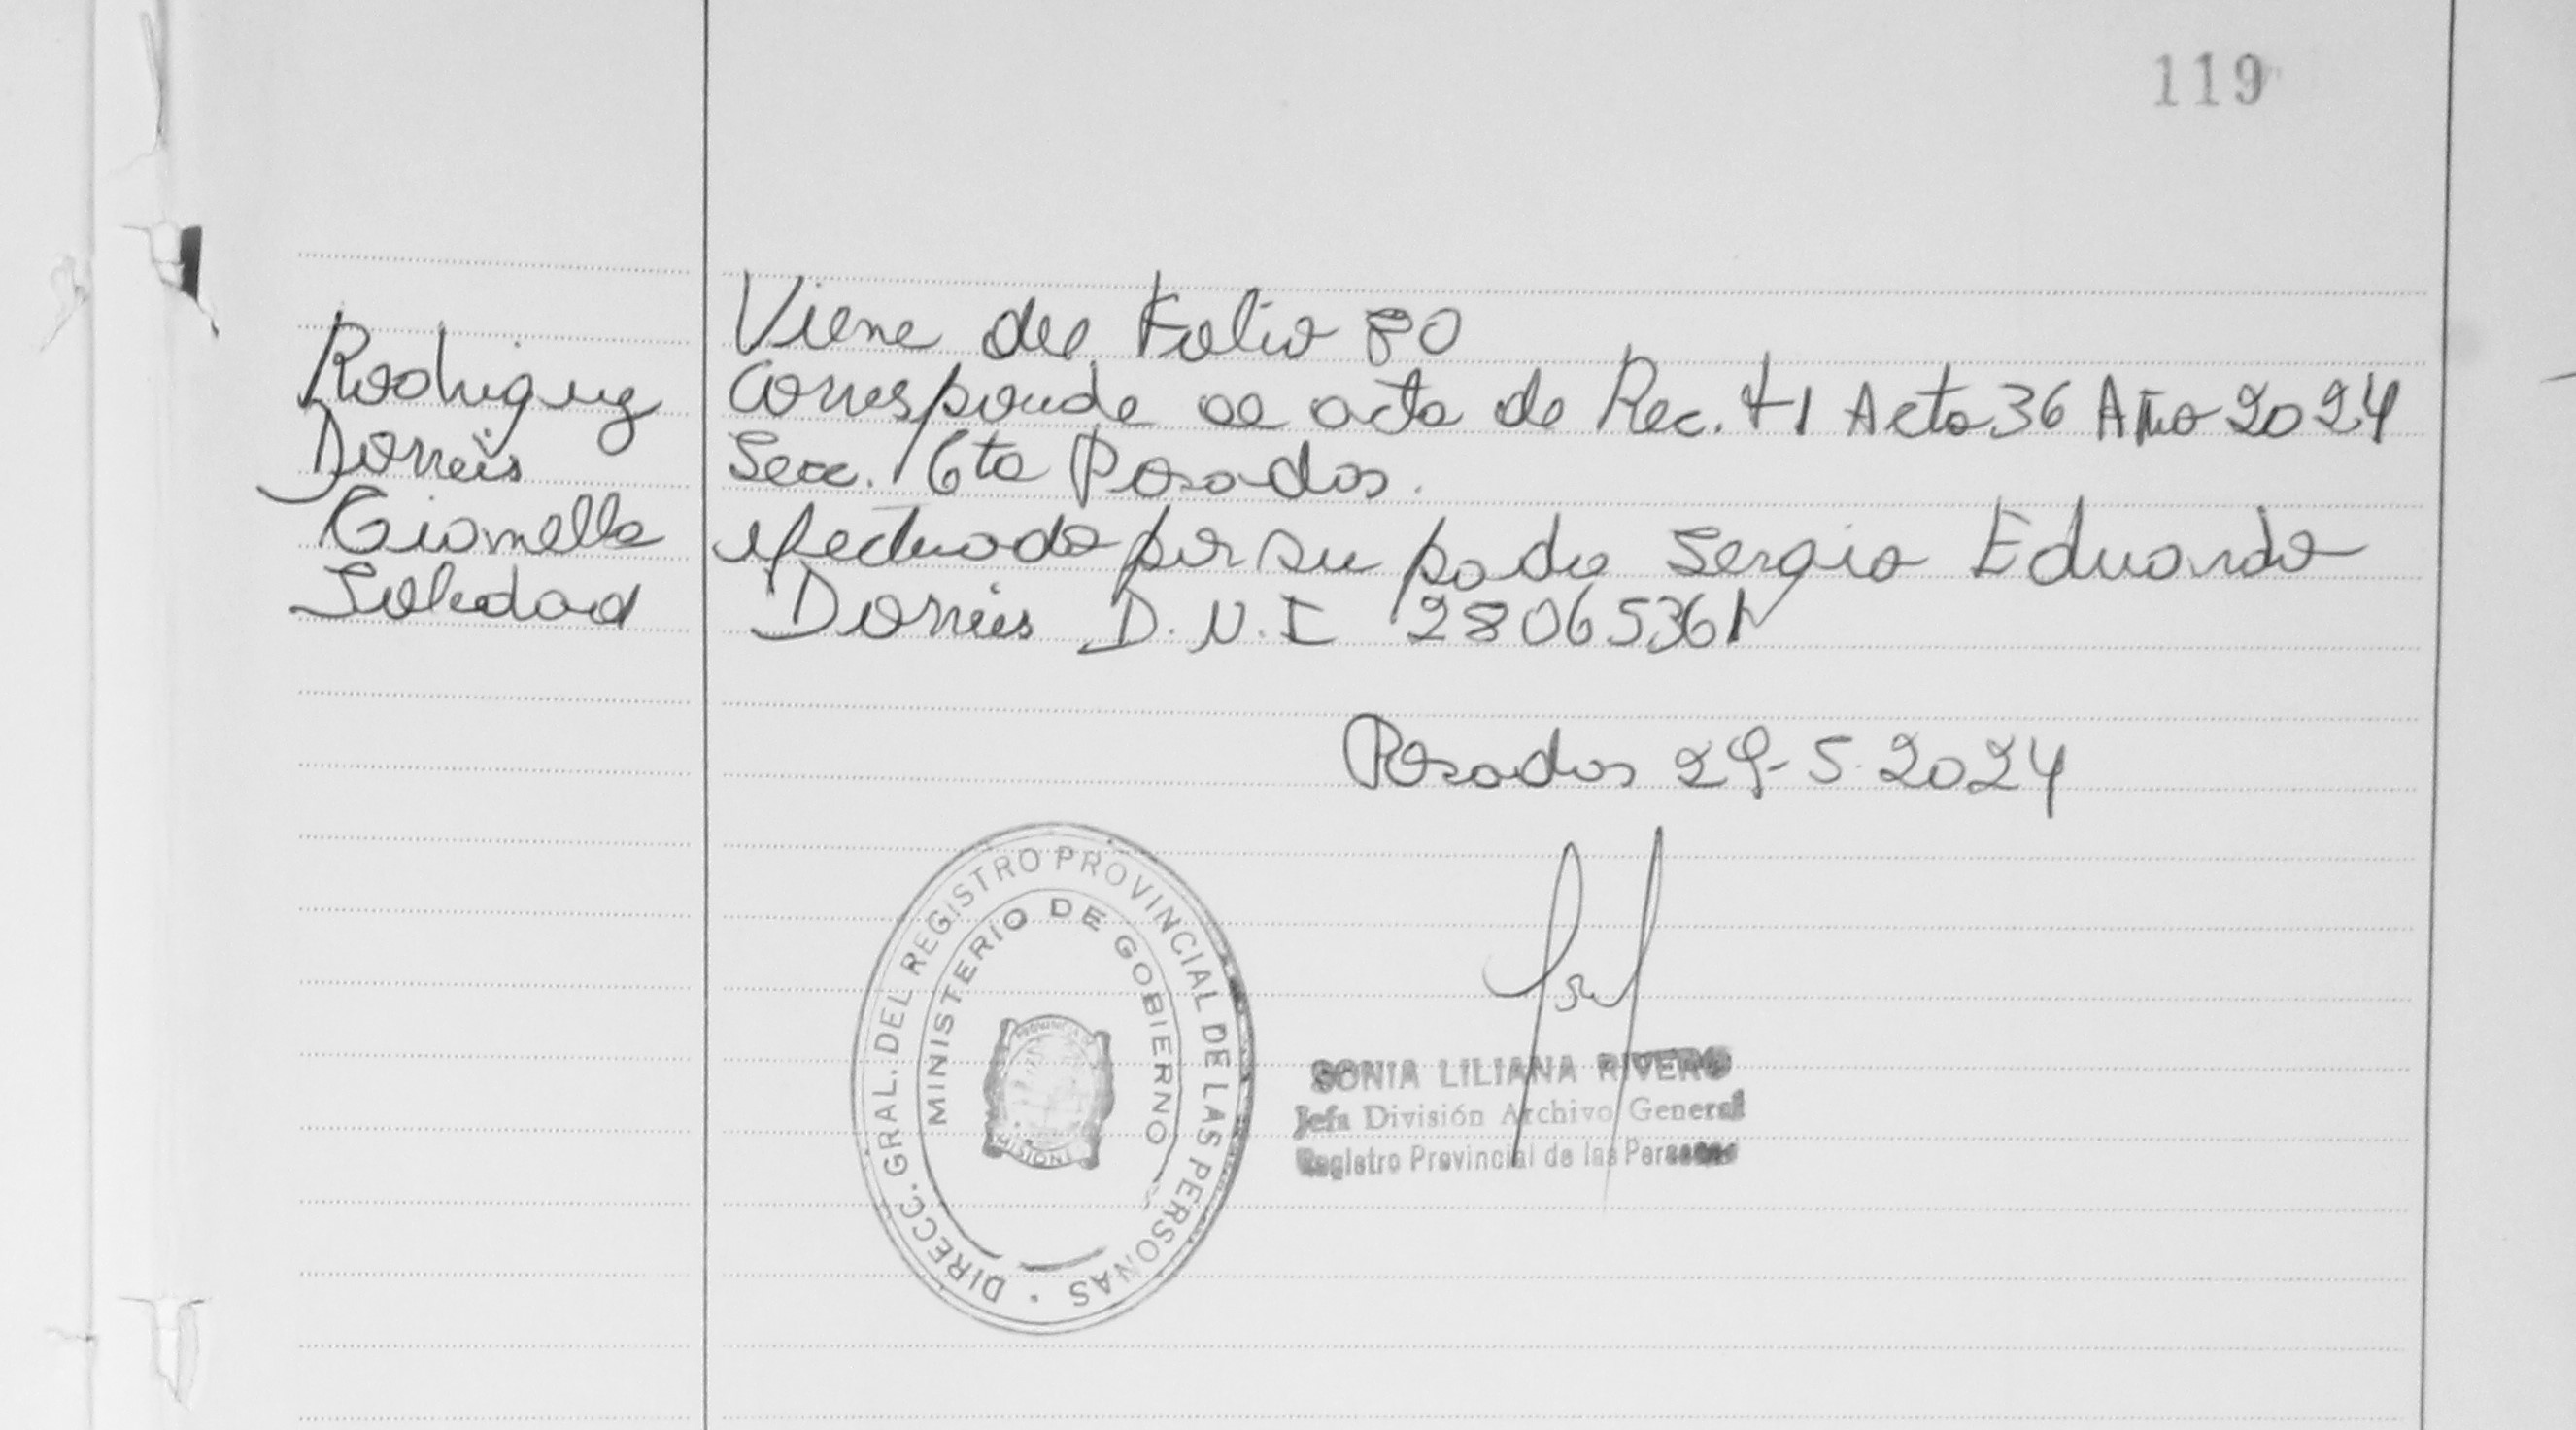 119
Viene del Folio 80
Rodriguez
Dorneis
Gionella
Soledad
Corresponde al acta de Rec. t1 Acta 36 Año 2024
Secc. 6ta Posadas.
efectuada por su padre Sergio Eduardo
Dorneis D.N.I 28065361
Posadas 29-5-2024
DIRECC. GRAL. DEL REGISTRO PROVINCIAL DE LAS PERSONAS
MINISTERIO DE GOBIERNO
PROVINCIA
MISIONES
SONIA LILIANA RIVERO
Jefa División Archivo General
Registro Provincial de las Personas